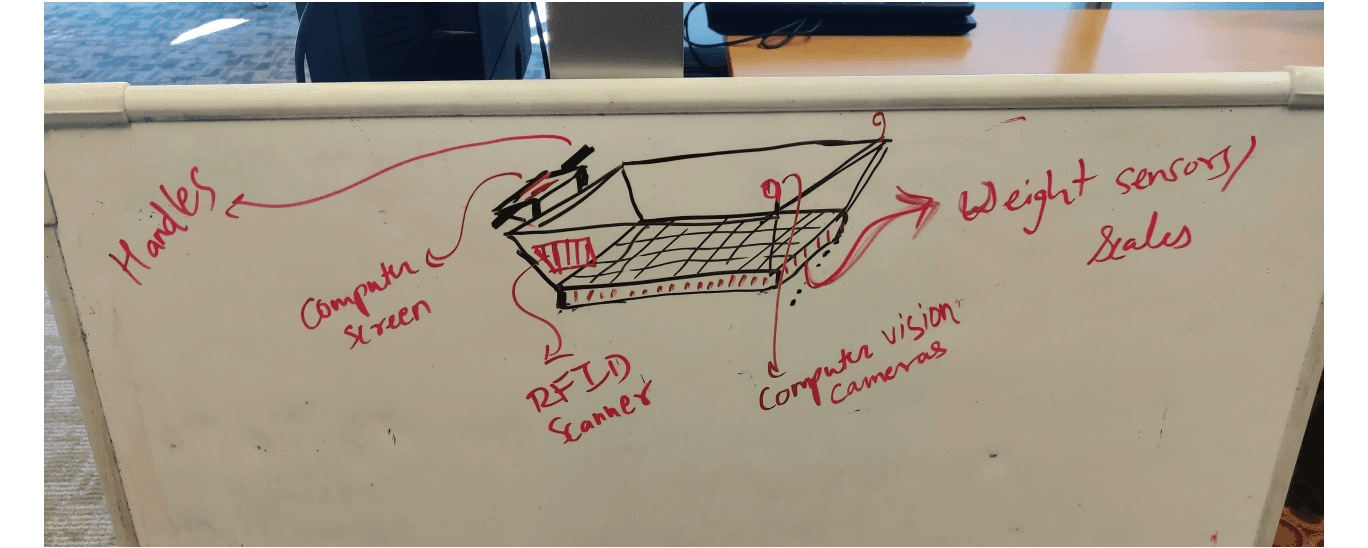 Handles
Computer
screen
RFID
Scanner
Computer vision
cameras
Weight sensors/
Scales